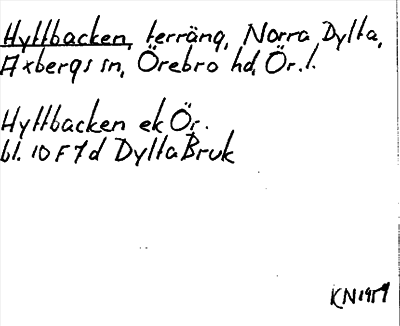 Hyttbacken, terräng, Norra Dylta,
Axbergs sn, Örebro hd, Ör.l.
Hyttbacken ek Ör.
bl. 10 F 7 d Dylta Bruk